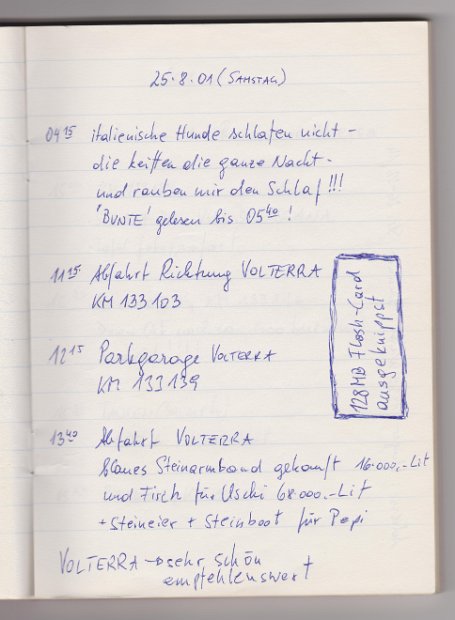 25.8.01 (SAMSTAG)
04 15 italienische Hunde schlafen nicht -
die keiften die ganze Nacht -
und rauben mir den Schlaf!!!
'BUNTE' gelesen bis 05 40!
11 15 Abfahrt Richtung VOLTERRA
KM 133103
12 15 Parkgarage VOLTERRA
KM 133139
128MB Flash-Card
ausgeknippst
13 40 Abfahrt VOLTERRA
blaues Steinarmband gekauft 16.000,-Lit
und Fisch für Uschi 68.000,-Lit
+ Steineier + Steinboot für Papi
VOLTERRA → sehr schön
empfehlenswert